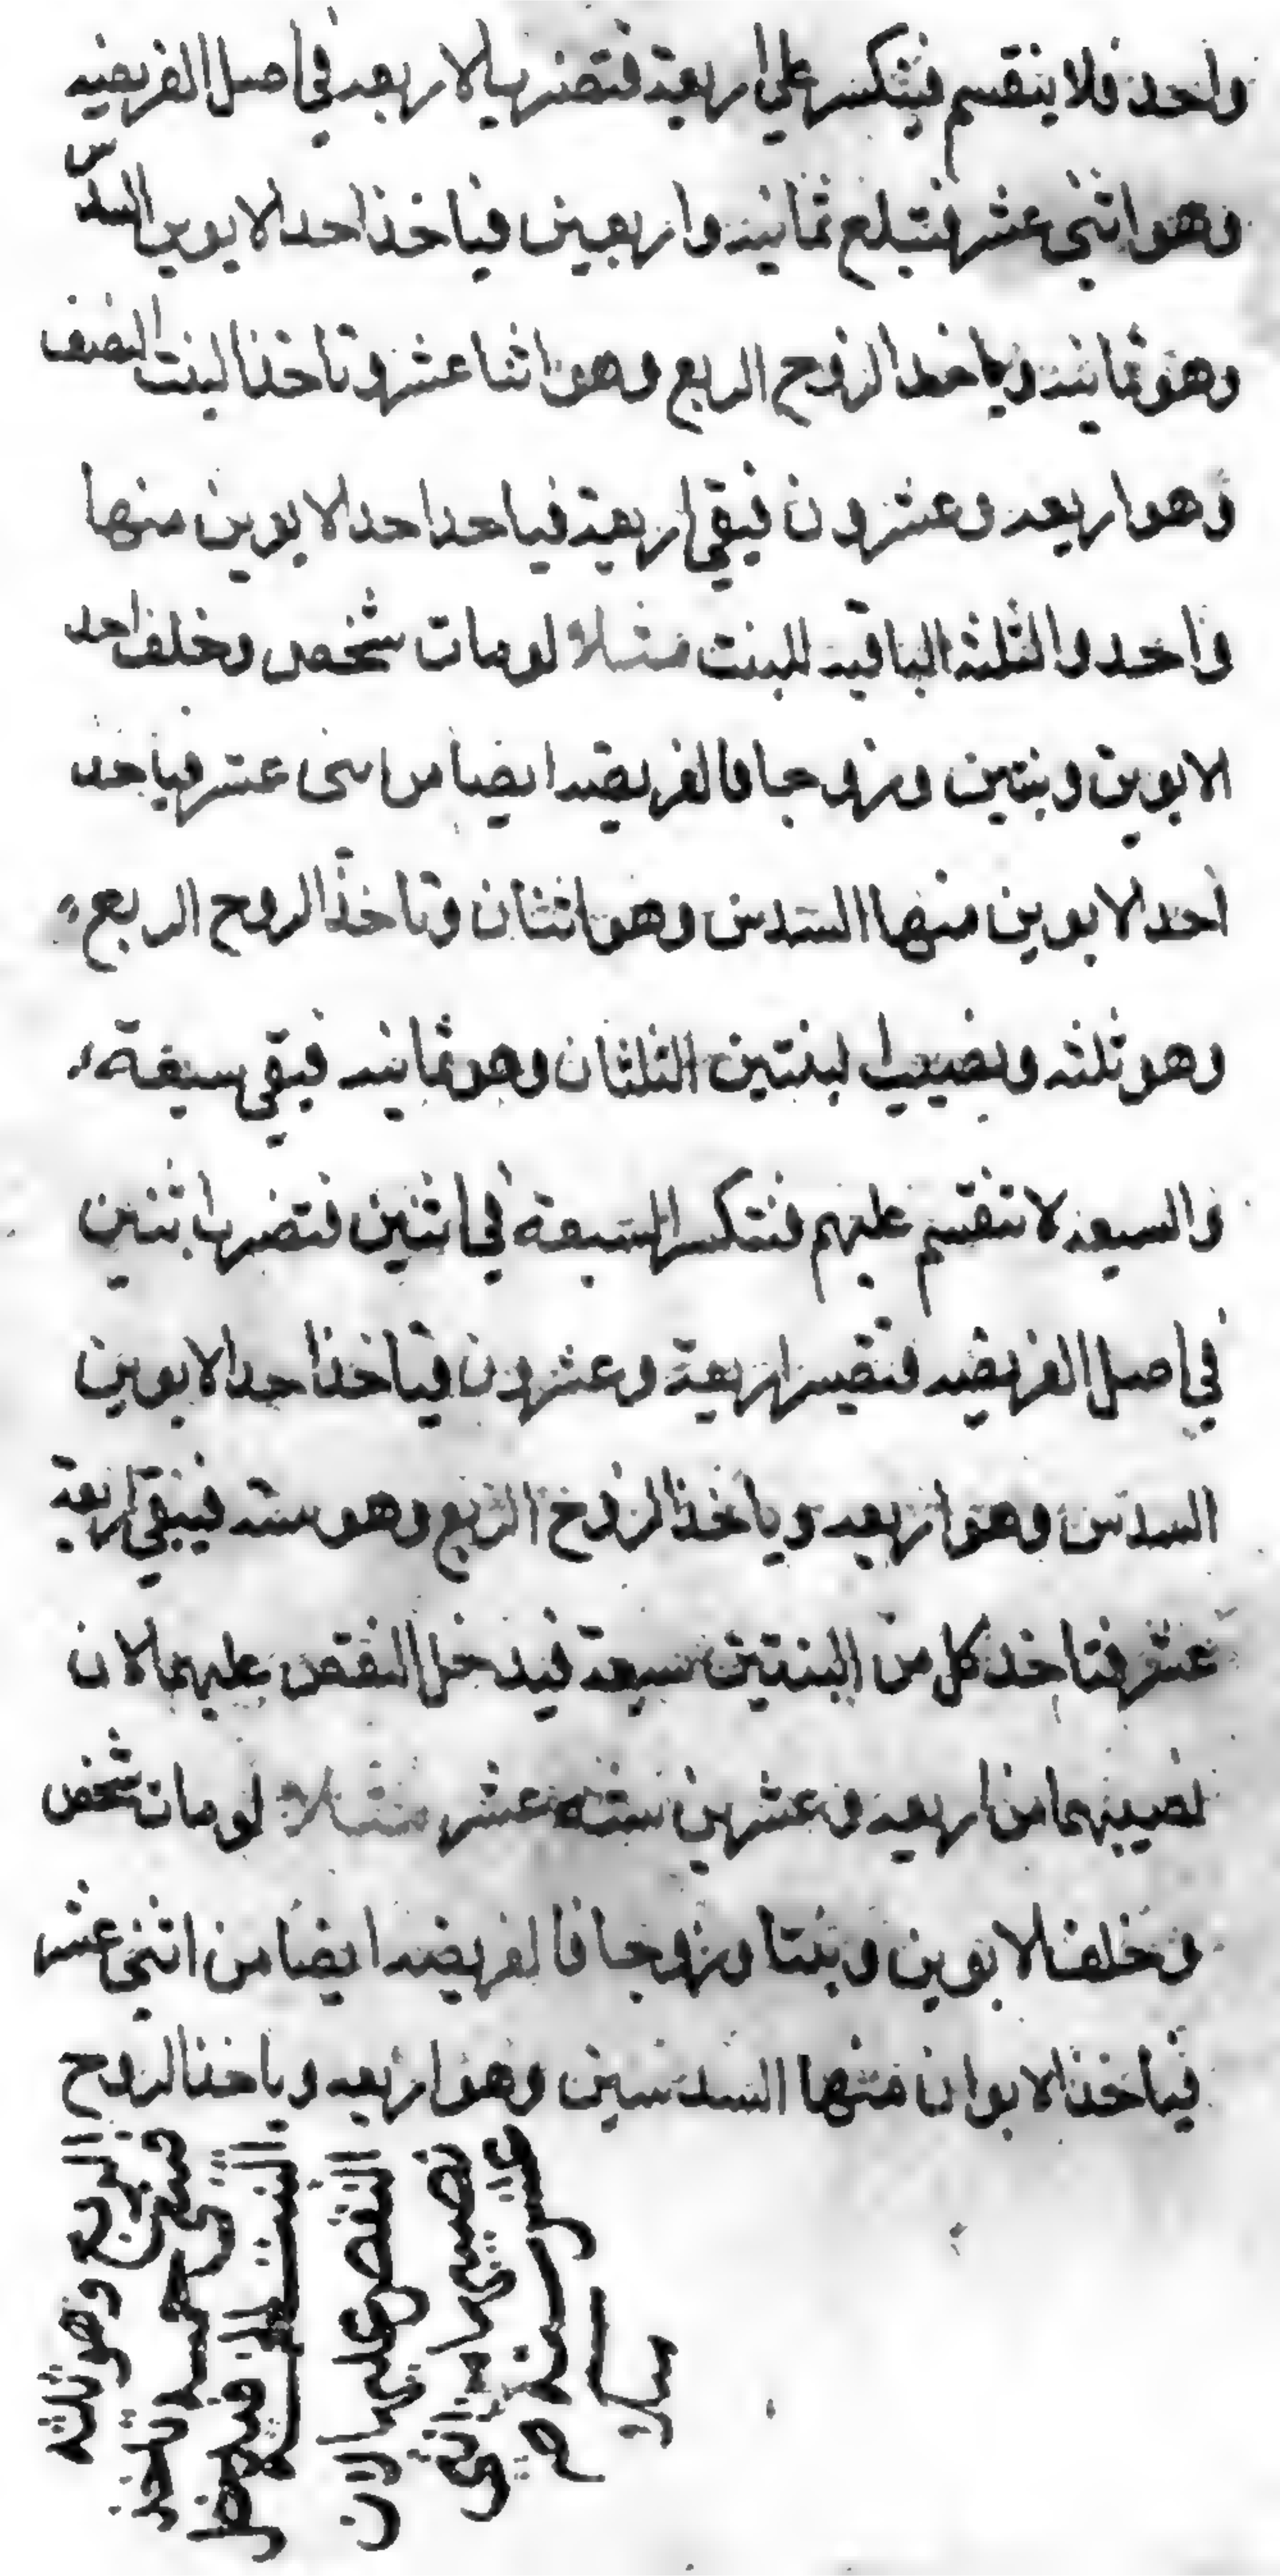 واحد فلا ينقسم فينكسر على اربعة فتضرب الاربعه في اصل الفريضه
وهو اثنى عشر فتبلغ ثمانيه واربعين فياخذ احد الابوين السدس
وهو ثمانيه وياخذ الزوج الربع وهو اثنا عشر وتاخذ البنت النصف
وهو اربعه وعشرون فبقى اربعة فياحد احد الابوين منها
واحد والثلثه الباقيه للبنت مثلا لو مات شخص وخلف احد
الابوين وبنتين وزوجا فالفريضه ايضا من اسى عشر فياخد
احد الابوين منها السدس وهو اثنان وتاخذ الروح الربع
وهو ثلثه ونصيب البنتين الثلثان وهو ثمانيه فبقى سبعة
والسبعه لا تنقسم عليهم فتنكسر السبعة في اثنين فتضرب اثنين
في اصل الفريضه فتصير اربعة وعشرون فياخذ احد الابوين
السدس وهو اربعه وياخذ الزوج الربع وهو سته فيبقى اربعة
عشر فتاخد كل من البنتين سبعة فيدخل النقص عليهما لان
نصيبهما من اربعه وعشرين ستة عشر مثلا لو مات شخص
وخلف الابوين وبنتا وزوجا فالفريضه ايضا من اثنى عشر
فياخذ الابوان منها السدسين وهو اربعه وياخذ الزوج
الربع وهو ثلثه
فتبقى خمسه تاخذ
البنت فيدخل
النقص عليها لان
نصيبها من اثنى
عشر سته